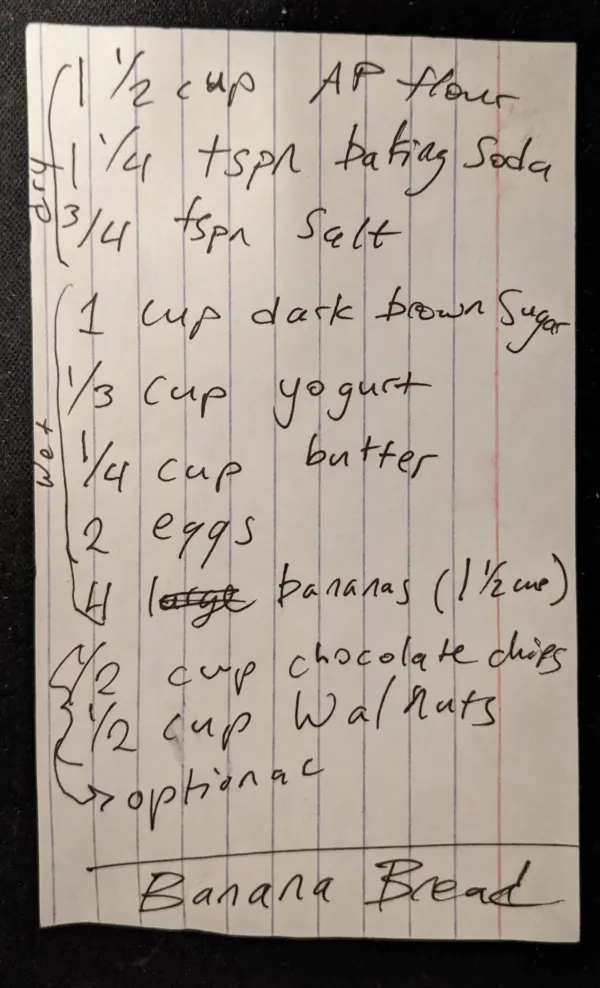 dry
1 1/2 cup AP flour
1 1/4 tspn baking Soda
3/4 tspn Salt
wet
1 cup dark brown Sugar
1/3 cup yogurt
1/4 cup butter
2 eggs
4 bananas (1 1/2 cup)
1/2 cup chocolate chips
1/2 cup Walnuts
optional
Banana Bread